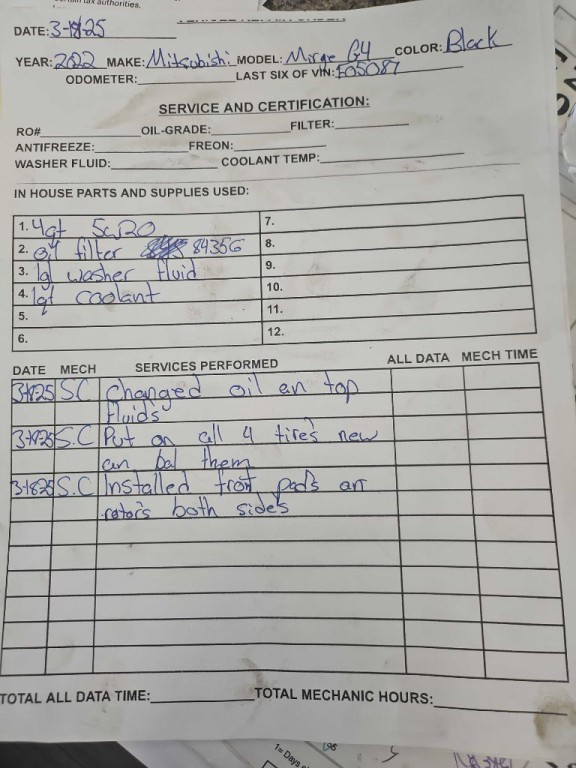 tain tax authorities.
DATE: 3-18-25
YEAR: 2022 MAKE: Mitsubishi MODEL: Mirge G4 COLOR: Black
ODOMETER: LAST SIX OF VIN: F05087
SERVICE AND CERTIFICATION:
RO# OIL-GRADE: FILTER:
ANTIFREEZE: FREON:
WASHER FLUID: COOLANT TEMP:
IN HOUSE PARTS AND SUPPLIES USED:
1. 4qt 5W20 7.
2. oil filter 84356 8.
3. 1g washer fluid 9.
4. 1qt coolant 10.
5. 11.
6. 12.
DATE MECH SERVICES PERFORMED ALL DATA MECH TIME
3-18-25 SC Changed oil an top
fluids
3-18-25 S.C Put on all 4 tires new
an bal them
3-18-25 S.C Installed front pads an
rotors both sides
TOTAL ALL DATA TIME: TOTAL MECHANIC HOURS:
1= Days